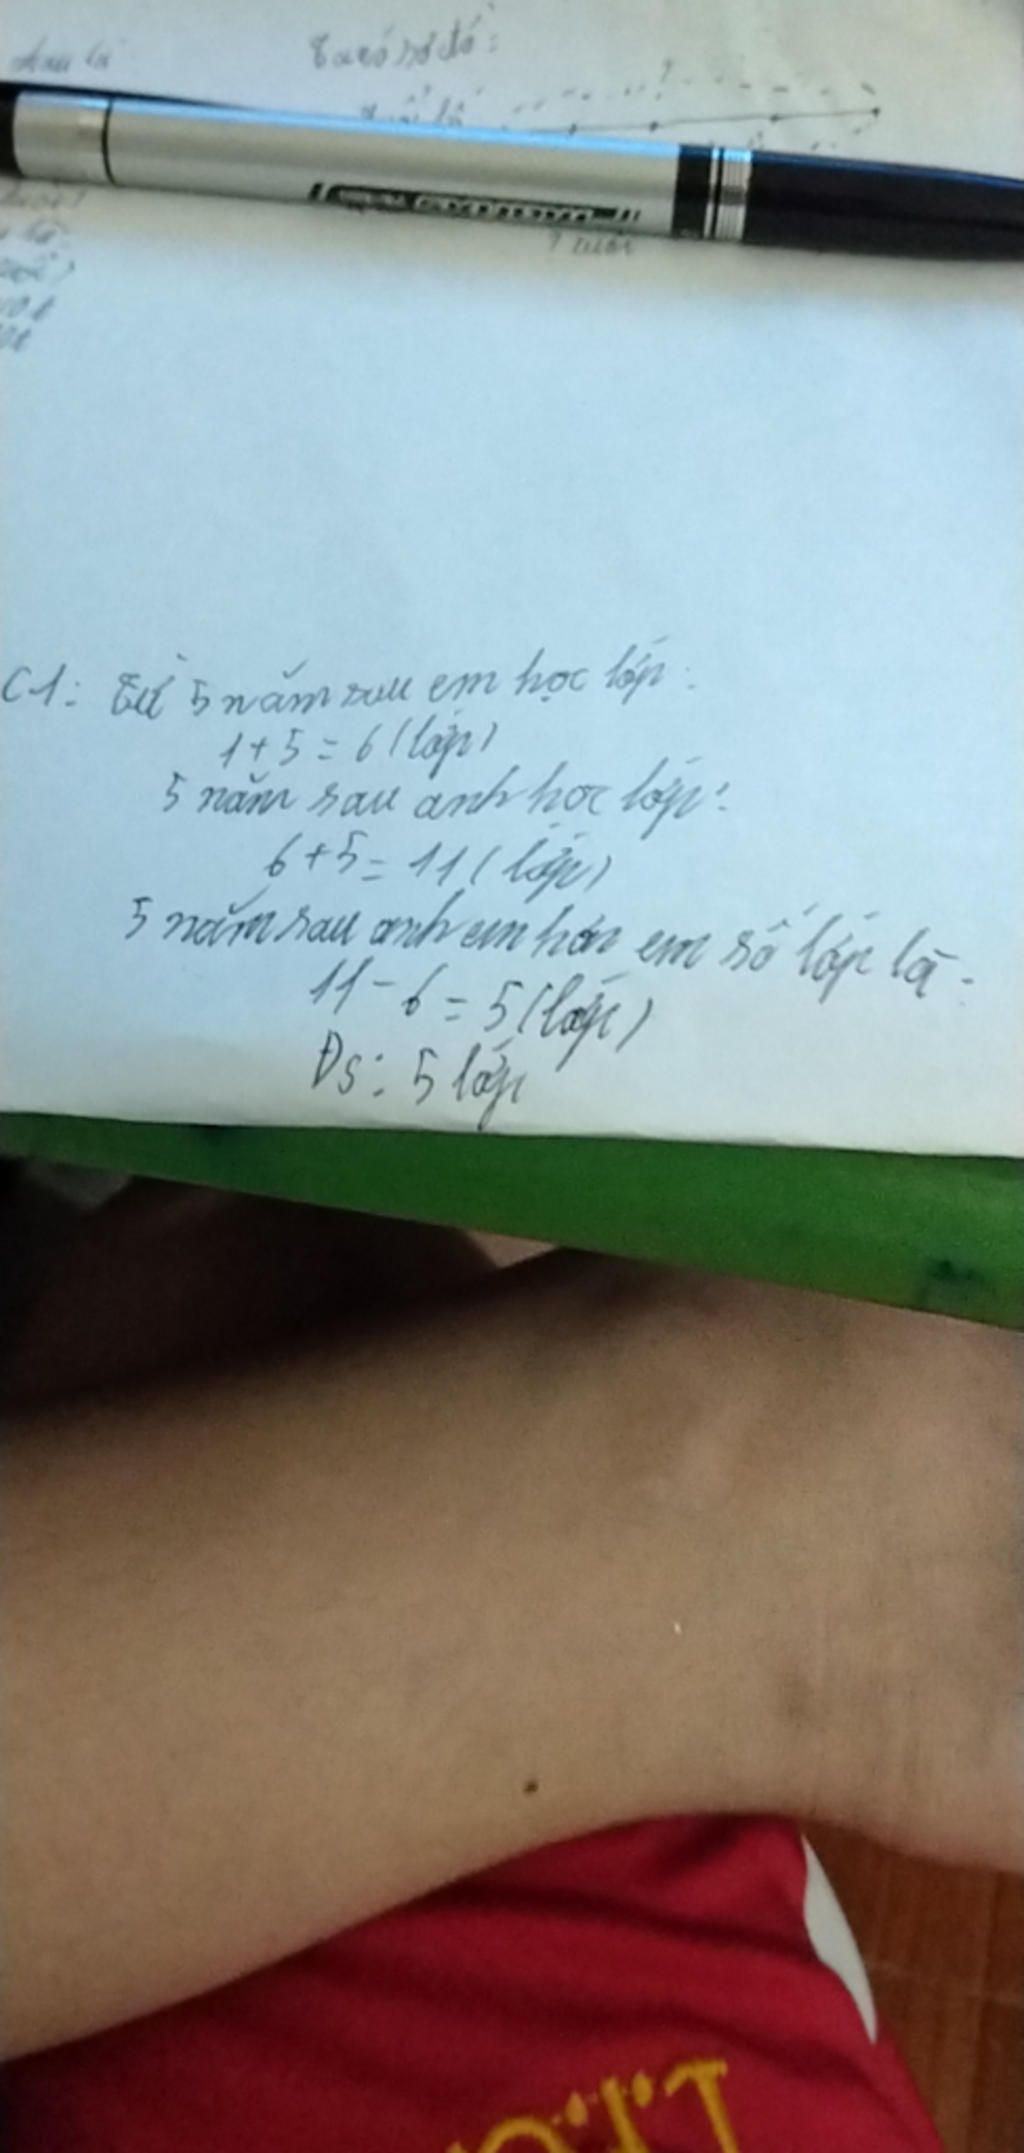 sau là
Ta có sơ đồ:
?
C1: Từ 5 năm sau em học lớp:
1+5=6(lớp)
5 năm sau anh học lớp:
6+5=11(lớp)
5 năm sau anh em hơn em số lớp là:
11-6=5(lớp)
Đs: 5 lớp